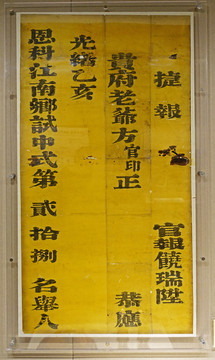 捷報 官報饒瑞陞
貴府老爺方官印正 恭應
光緒乙亥
恩科江南鄉試中式第貳拾捌名舉人